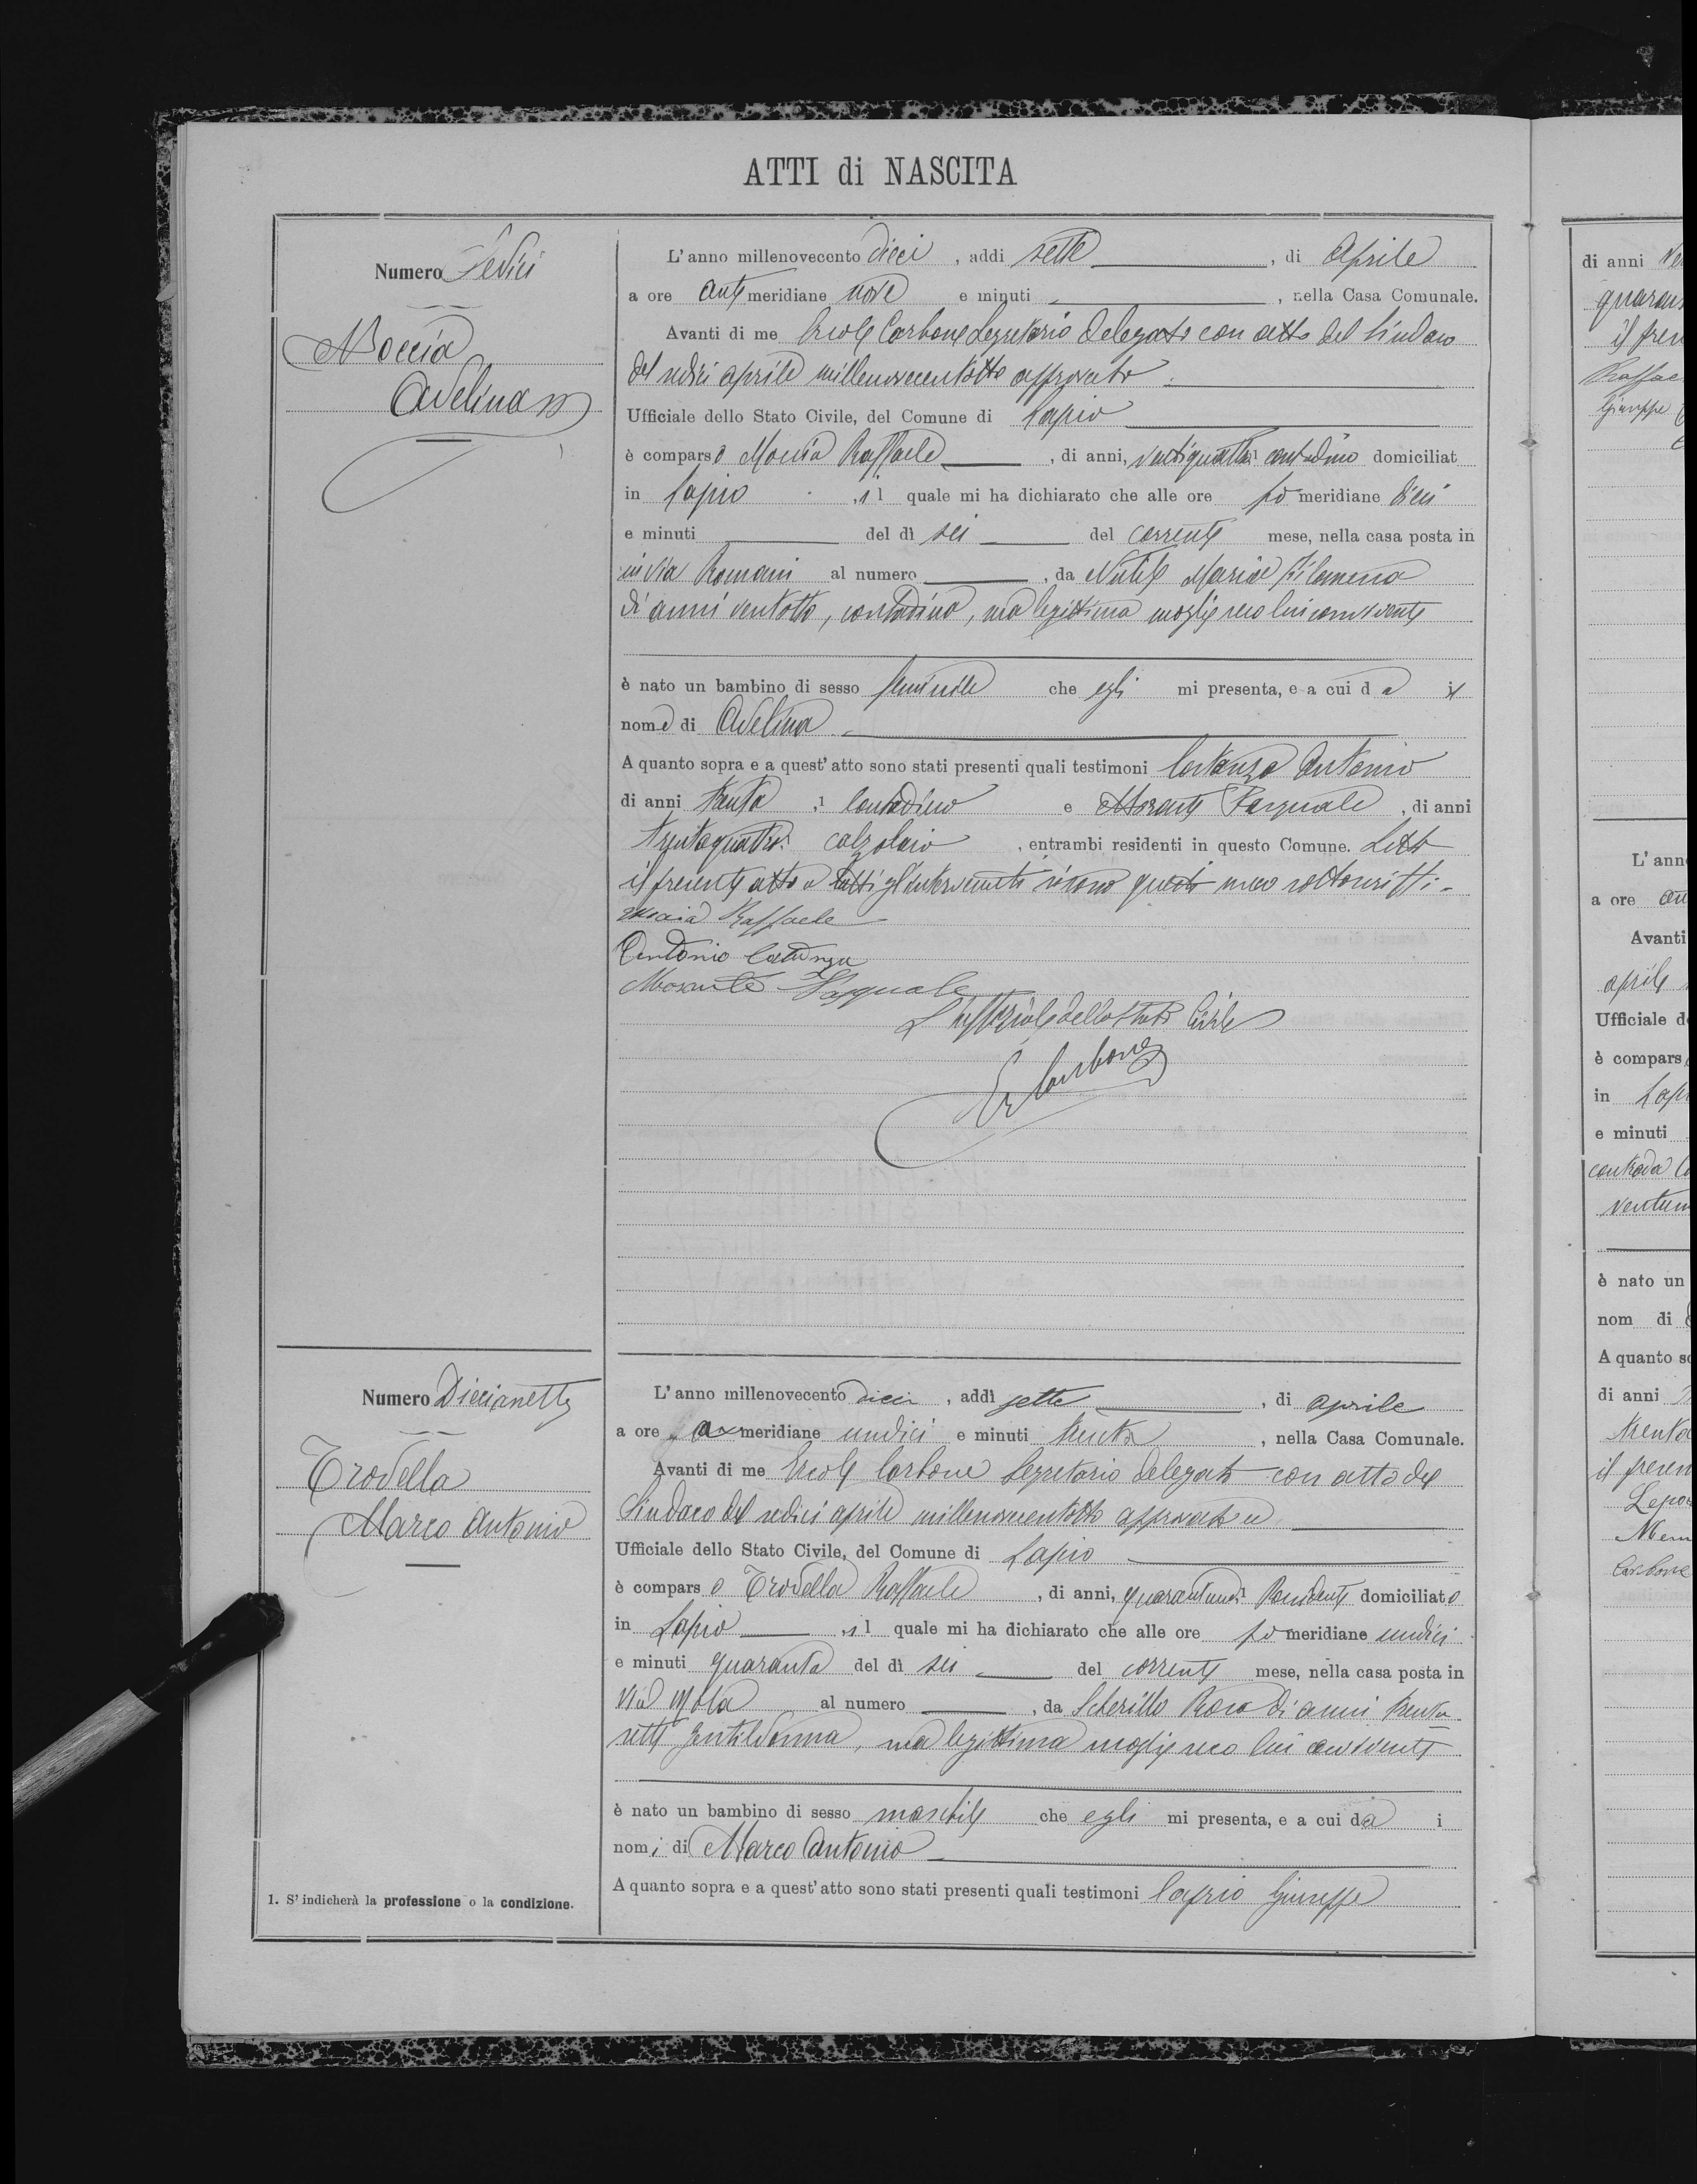 ATTI di NASCITA
Numero Sedici
Moccia
Adelina
L'anno millenovecento dieci, addì sette, di Aprile
a ore antimeridiane nove e minuti, nella Casa Comunale.
Avanti di me Ercole Carbone Segretario delegato con atto del Sindaco
del sedici aprile millenovecentotto approvato
Ufficiale dello Stato Civile, del Comune di Lapio
è comparso Moccia Raffaele, di anni, ventiquattro 1 contadino domiciliat
in Lapio, il quale mi ha dichiarato che alle ore pomeridiane dieci
e minuti del dì sei del corrente mese, nella casa posta in
in Via Romani al numero, da Maria Filomena
di anni ventotto, contadina, sua legittima moglie seco lui convivente
è nato un bambino di sesso feminile che egli mi presenta, e a cui da il
nome di Adelina
A quanto sopra e a quest'atto sono stati presenti quali testimoni Costanza Antonio
di anni trenta, 1 contadino e Morante Pasquale, di anni
trentaquattro 1 calzolaio, entrambi residenti in questo Comune. Letto
il presente atto a tutti gl'intervenuti si sono questi meco sottoscritti.
Moccia Raffaele
Antonio Costanza
Morante Pasquale
L'uffiziale dello Stato Civile
E Carbone
Numero Diecianette
Trodella
Marco Antonio
L'anno millenovecento dieci, addì sette, di aprile
a ore meridiane undici e minuti trenta, nella Casa Comunale.
Avanti di me Ercole Carbone Segretario delegato con atto del
Sindaco del sedici aprile millenovecentotto approvato
Ufficiale dello Stato Civile, del Comune di Lapio
è comparso Trodella Raffaele, di anni, quarantuno 1 Possidente domiciliato
in Lapio, il quale mi ha dichiarato che alle ore pomeridiane undici
e minuti quaranta del dì sei del corrente mese, nella casa posta in
Via al numero, da Scherillo Rosa di anni trenta
sette gentildonna, sua legittima moglie seco lui convivente
è nato un bambino di sesso maschile che egli mi presenta, e a cui da i
nomi di Marco Antonio
A quanto sopra e a quest'atto sono stati presenti quali testimoni Caprio Giuseppe
1. S'indicherà la professione o la condizione.
di anni
il
Raffae
Giuseppe
L'ann
a ore
Avanti
aprile
Ufficiale d
è compars
in Lapi
e minuti
contrada
ventun
è nato un
nom di
A quanto so
di anni
trenta
il presen
Carbone